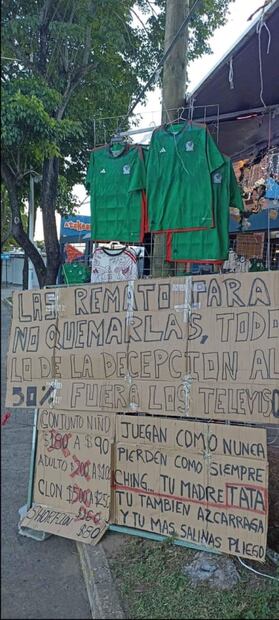 LAS REMATO PARA
NO QUEMARLAS, TODO
LO DE LA DECEPCION AL
30% FUERA LOS TELEVISO
CONJUNTO NIÑO
$180 A $90
ADULTO
CLON $500 A $25
SHORT CLON
$50
JUEGAN COMO NUNCA
PIERDEN COMO SIEMPRE
CHING.. TU MADRE TATA
TU TAMBIEN AZCARRAGA
Y TU MAS SALINAS PLIEGO